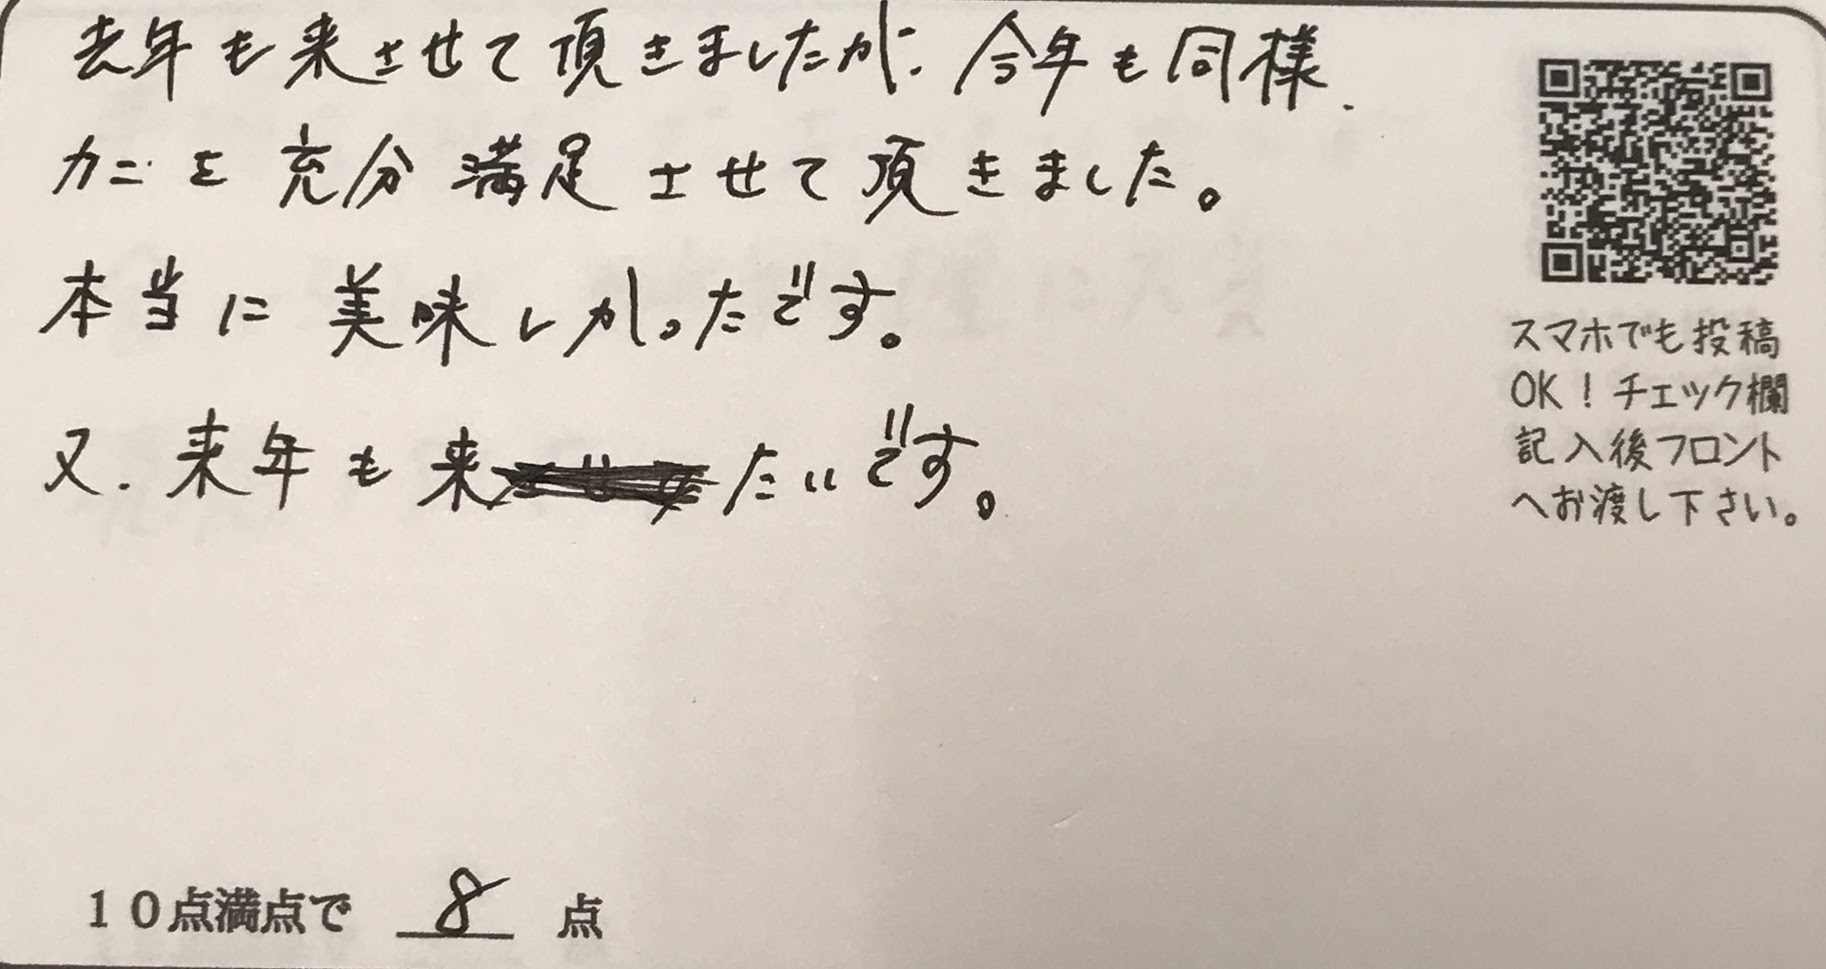 去年も来させて頂きましたが、今年も同様、
カニを充分満足させて頂きました。
本当に美味しかったです。
又、来年も来たいです。
スマホでも投稿
OK！チェック欄
記入後フロント
へお渡し下さい。
10点満点で 8 点